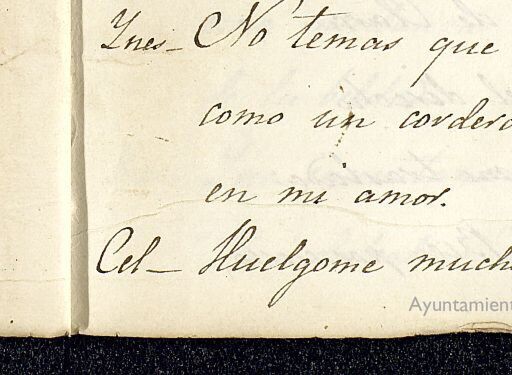 Ynes_ No temas que
como un corder
en mi amor.
Cel_ Huelgome much
Ayuntamient